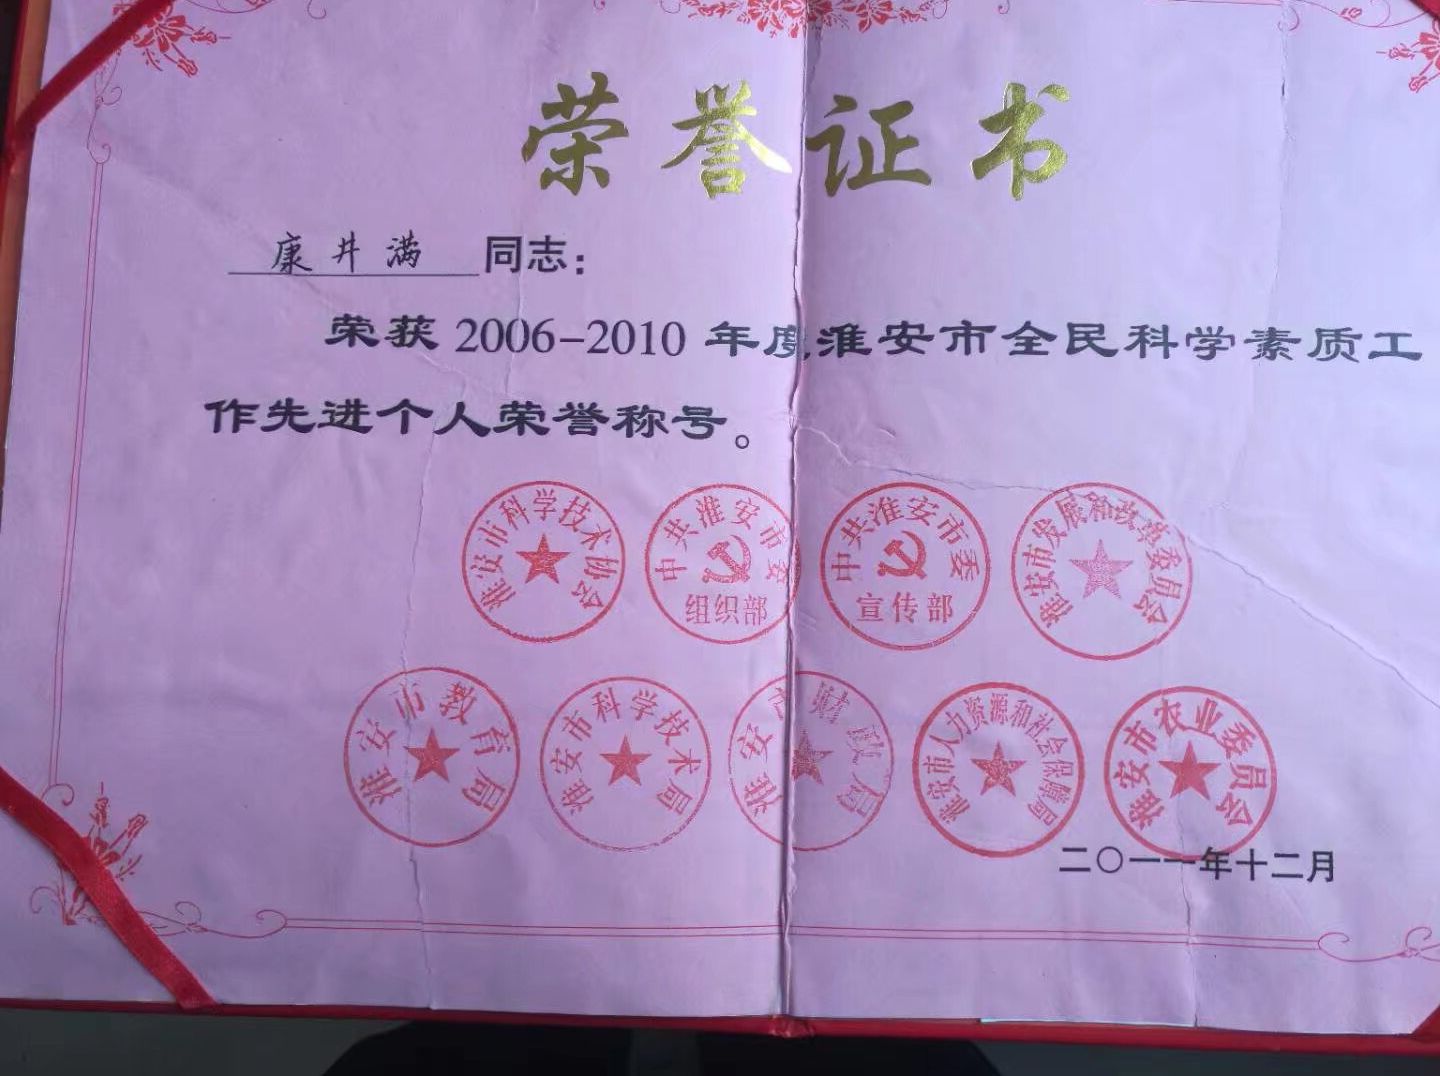 荣誉证书
康井满 同志：
荣获 2006-2010 年度淮安市全民科学素质工
作先进个人荣誉称号。
淮安市科学技术协会
中共淮安市委
组织部
中共淮安市委
宣传部
淮安市发展和改革委员会
淮安市教育局
淮安市科学技术局
淮安市财政局
淮安市人力资源和社会保障局
淮安市农业委员会
二〇一一年十二月